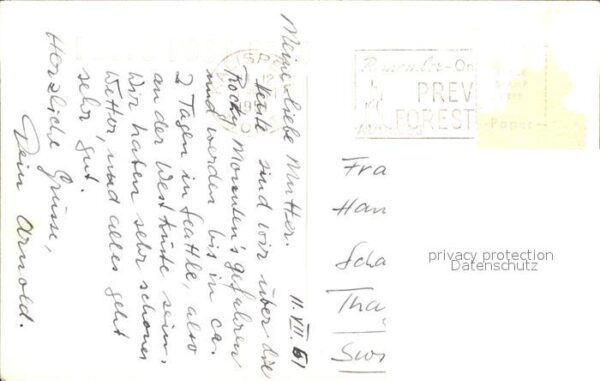 11. VII. 61
Meine liebe Mutter.
Heute sind wir über die
Rocky Mounten's gefahren
und werden bis in ca.
2 Tagen in Seattle, also
an der Westküste sein.
Wir haben sehr schönes
Wetter, und alles geht
sehr gut.
Herzliche Grüsse,
Dein Arnold.
PREV
FOREST
Fra
Han
Scha
Tha
privacy protection
Datenschutz